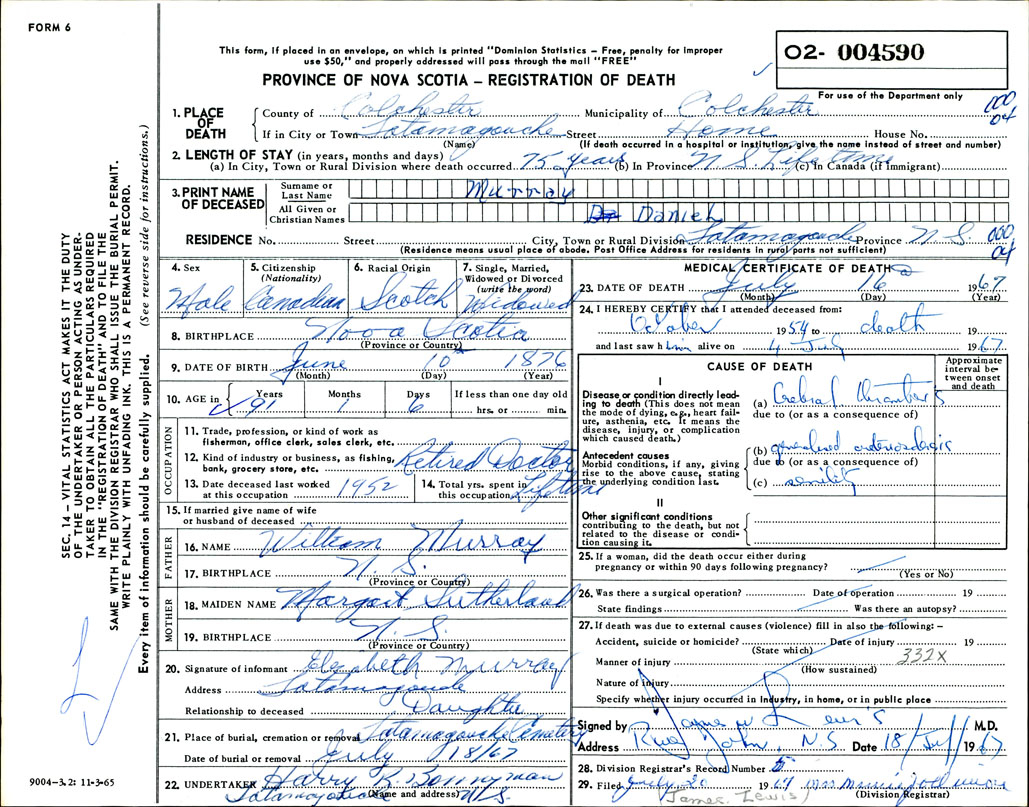 FORM 6
This form, if placed in an envelope, on which is printed "Dominion Statistics – Free, penalty for improper
use $50," and properly addressed will pass through the mail "FREE"
O2- 004590
PROVINCE OF NOVA SCOTIA – REGISTRATION OF DEATH
For use of the Department only
000
04
1. PLACE OF DEATH
County of Colchester Municipality of Colchester
If in City or Town Tatamagouche Street Home House No.
(Name) (If death occurred in a hospital or institution, give the name instead of street and number)
2. LENGTH OF STAY (in years, months and days)
(a) In City, Town or Rural Division where death occurred 75 years (b) In Province N.S. Lifetime (c) In Canada (if immigrant)
3. PRINT NAME OF DECEASED
Surname or Last Name Murray
All Given or Christian Names Dr Daniel
RESIDENCE No. Street City, Town or Rural Division Tatamagouche Province N.S.
(Residence means usual place of abode. Post Office Address for residents in rural parts not sufficient)
000
04
4. Sex Male
5. Citizenship (Nationality) Canadian
6. Racial Origin Scotch
7. Single, Married, Widowed or Divorced (write the word) Widowed
8. BIRTHPLACE Nova Scotia
(Province or Country)
9. DATE OF BIRTH June 10 1876
(Month) (Day) (Year)
10. AGE in Years 91 Months 1 Days 6 If less than one day old hrs. or min.
OCCUPATION
11. Trade, profession, or kind of work as fisherman, office clerk, sales clerk, etc.
12. Kind of industry or business, as fishing, bank, grocery store, etc. Retired Doctor
13. Date deceased last worked at this occupation 1952
14. Total yrs. spent in this occupation Lifetime
15. If married give name of wife or husband of deceased
FATHER
16. NAME William Murray
17. BIRTHPLACE N.S.
(Province or Country)
MOTHER
18. MAIDEN NAME Margaret Sutherland
19. BIRTHPLACE N.S.
(Province or Country)
20. Signature of informant Elizabeth Murray
Address Tatamagouche
Relationship to deceased Daughter
21. Place of burial, cremation or removal Tatamagouche Cemetery
Date of burial or removal July 18/67
22. UNDERTAKER Harry B. Bonnyman
Tatamagouche (Name and address) N.S.
MEDICAL CERTIFICATE OF DEATH
23. DATE OF DEATH July 16 1967
(Month) (Day) (Year)
24. I HEREBY CERTIFY that I attended deceased from:
October 1954 to death 19
and last saw him alive on 4 July 1967
CAUSE OF DEATH
Approximate interval between onset and death
I
Disease or condition directly leading to death (This does not mean the mode of dying, e.g., heart failure, asthenia, etc. It means the disease, injury, or complication which caused death.)
(a) Cerebral thrombosis
due to (or as a consequence of)
Antecedent causes
Morbid conditions, if any, giving rise to the above cause, stating the underlying condition last.
(b) generalized arteriosclerosis
due to (or as a consequence of)
(c) senility
II
Other significant conditions
contributing to the death, but not related to the disease or condition causing it.
25. If a woman, did the death occur either during pregnancy or within 90 days following pregnancy?
(Yes or No)
26. Was there a surgical operation? Date of operation 19
State findings Was there an autopsy?
27. If death was due to external causes (violence) fill in also the following: –
Accident, suicide or homicide? Date of injury 19
(State which)
332X
Manner of injury
(How sustained)
Nature of injury
Specify whether injury occurred in Industry, in home, or in public place
Signed by James W Lewis M.D.
Address River John, N.S. Date 18 July 1967
28. Division Registrar's Record Number 5
29. Filed July 20 1967 Mrs
(Division Registrar)
(James Lewis)
SEC. 14 – VITAL STATISTICS ACT MAKES IT THE DUTY
OF THE UNDERTAKER OR PERSON ACTING AS UNDER-
TAKER TO OBTAIN ALL THE PARTICULARS REQUIRED
IN THE "REGISTRATION OF DEATH" AND TO FILE THE
SAME WITH THE DIVISION REGISTRAR WHO SHALL ISSUE THE BURIAL PERMIT.
WRITE PLAINLY WITH UNFADING INK. THIS IS A PERMANENT RECORD.
Every item of information should be carefully supplied. (See reverse side for instructions.)
9004–3.2: 11-3-65